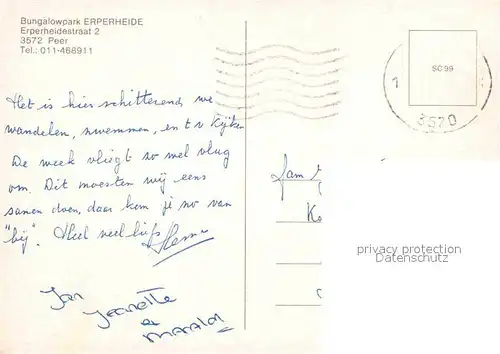 Bungalowpark ERPERHEIDE
Erperheidestraat 2
3572 Peer
Tel.: 011-468911
SC 99
1
3570
Het is hier schitterend, we
wandelen, zwemmen, en t v kijken
De week vliegt zo wel vlug
om. Dit moesten wij eens
samen doen, daar kom je no van
"bij". Heel veel liefs
Fam
Jan
Jeanette
privacy protection
Datenschutz